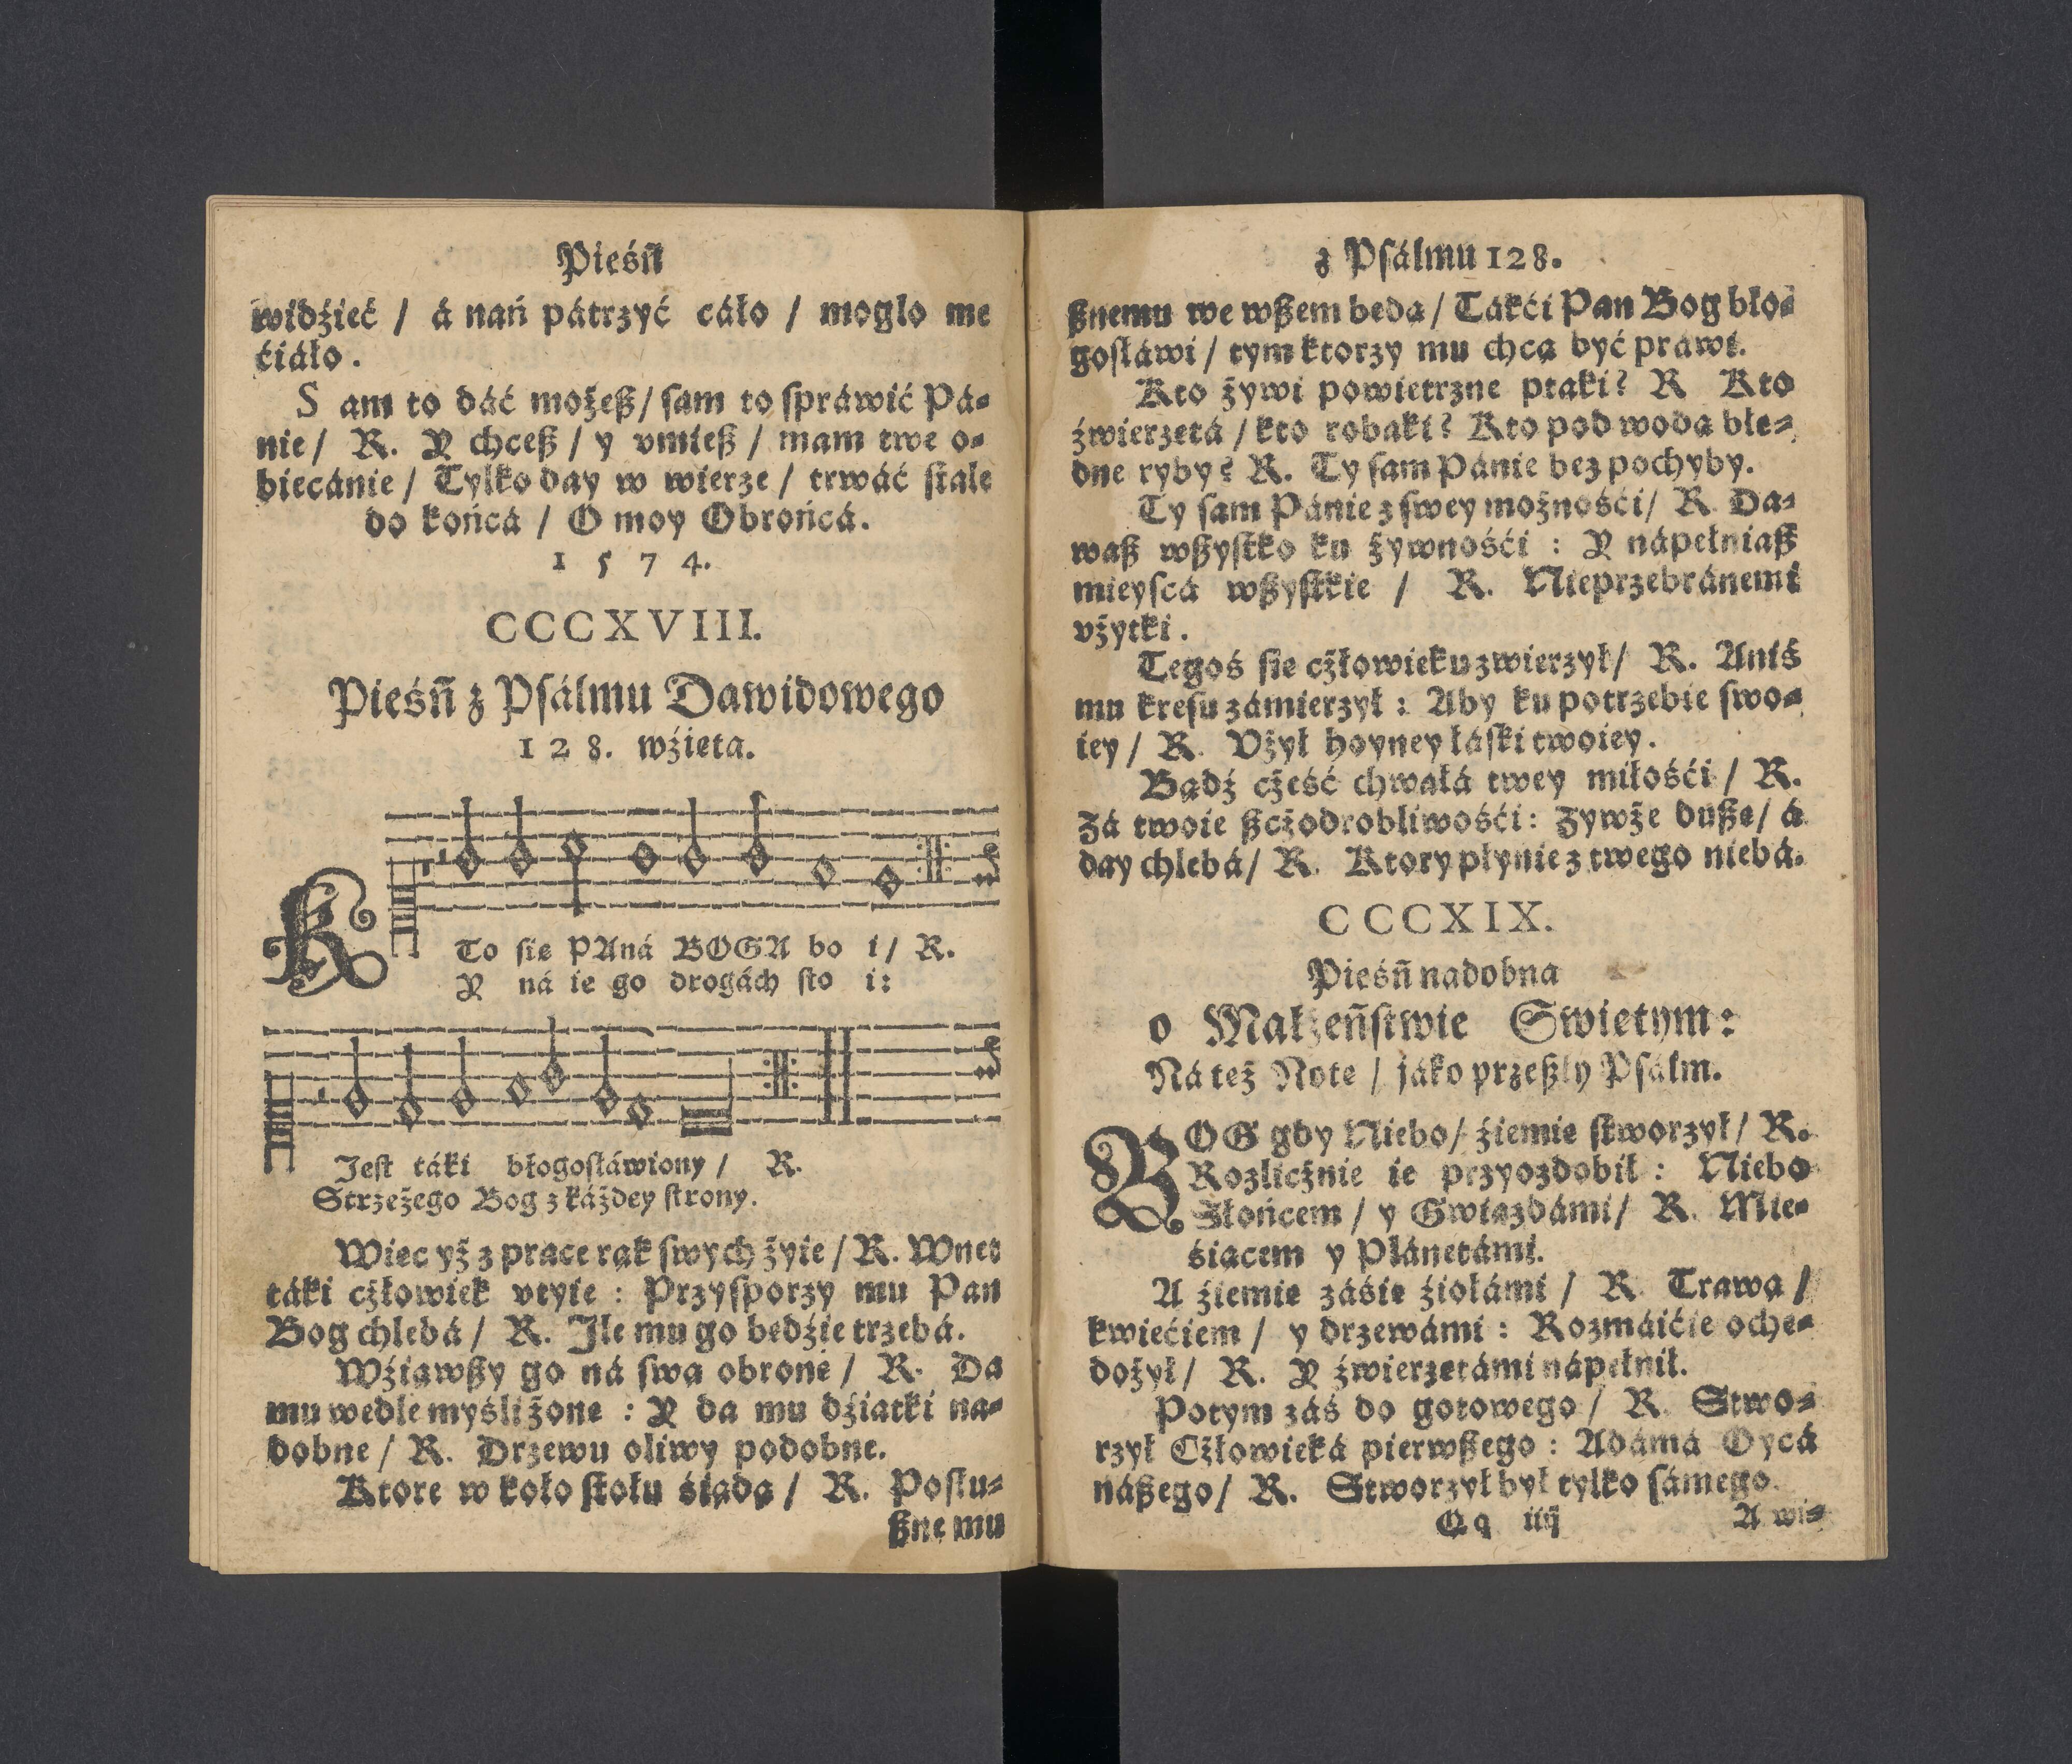 Pieśń
widźieć / á nań pátrzyć cáło / mogło me
ćiáło.
S am to dáć możeß / ſam to ſpráwić Pá-
nie / R. Y chceß / y vmieß / mam twe o-
biecánie / Tylko day w wierze / trwáć ſtale
do końcá / O moy Obrońcá.
1 5 7 4.
CCCXVIII.
Pieśń z Pſálmu Dawidowego
1 2 8. wźieta.
KTo ſie PAná BOGA bo i / R.
Y ná ie go drogách ſto i:
Jeſt táki błogoſláwiony / R.
Strzeżego Bog z káżdey ſtrony.
Wiec yż z prace rąk ſwych żyie / R. Wnet
táki cżłowiek vtyie : Przyſporzy mu Pan
Bog chlebá / R. Jle mu go bedźie trzebá.
Wźiąwßy go ná ſwą obronę / R. Da
mu wedle myśli żone : Y da mu dźiatki na-
dobne / R. Drzewu oliwy podobne.
Ktore w koło ſtołu śiądą / R. Poſlu-
ßnemu
z Pſálmu 128.
ßnemu we wßem bedą / Tákći Pan Bog bło-
goſláwi / tym ktorzy mu chcą być práwi.
Kto żywi powietrzne ptaki? R Kto
źwierzetá / kto robaki? Kto pod wodą błe-
dne ryby? R. Ty ſam Pánie bez pochyby.
Ty ſam Pánie z ſwey możnośći / R. Da-
waß wßyſtko ku żywnośći : Y nápełniaß
mieyſcá wßyſtkie / R. Nieprzebránemi
vżytki.
Tegoś ſie cżłowieku zwierzył / R. Aniś
mu kreſu zámierzył : Aby ku potrzebie ſwo-
iey / R. Vżył hoyney łáſki twoiey.
Bądź cżeść chwałá twey miłośći / R.
Zá twoie ßcżodrobliwośći: Zywże duße / á
day chlebá / R. Ktory płynie z twego niebá.
CCCXIX.
Pieśń nadobna
o Małżeńſtwie Swietym:
Ná też Note / jáko przeßły Pſálm.
BOG gdy Niebo / źiemie ſtworzył / R.
Rozlicżnie ie przyozdobił : Niebo
Słońcem / y Gwiazdámi / R. Mie-
śiącem y Plánetámi.
A źiemie záśie źiołámi / R. Trawą /
kwiećiem / y drzewámi : Rozmáićie oche-
dożył / R. Y źwierzetámi nápełnił.
Potym záś do gotowego / R. Stwo-
rzył Cżłowieká pierwßego : Adámá Oycá
náßego / R. Stworzył był tylko ſámego.
Qq iiij
A wi-